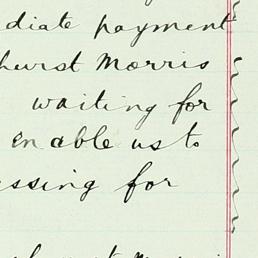 diate payment
hurst Morris
waiting for
enable us to
essing for